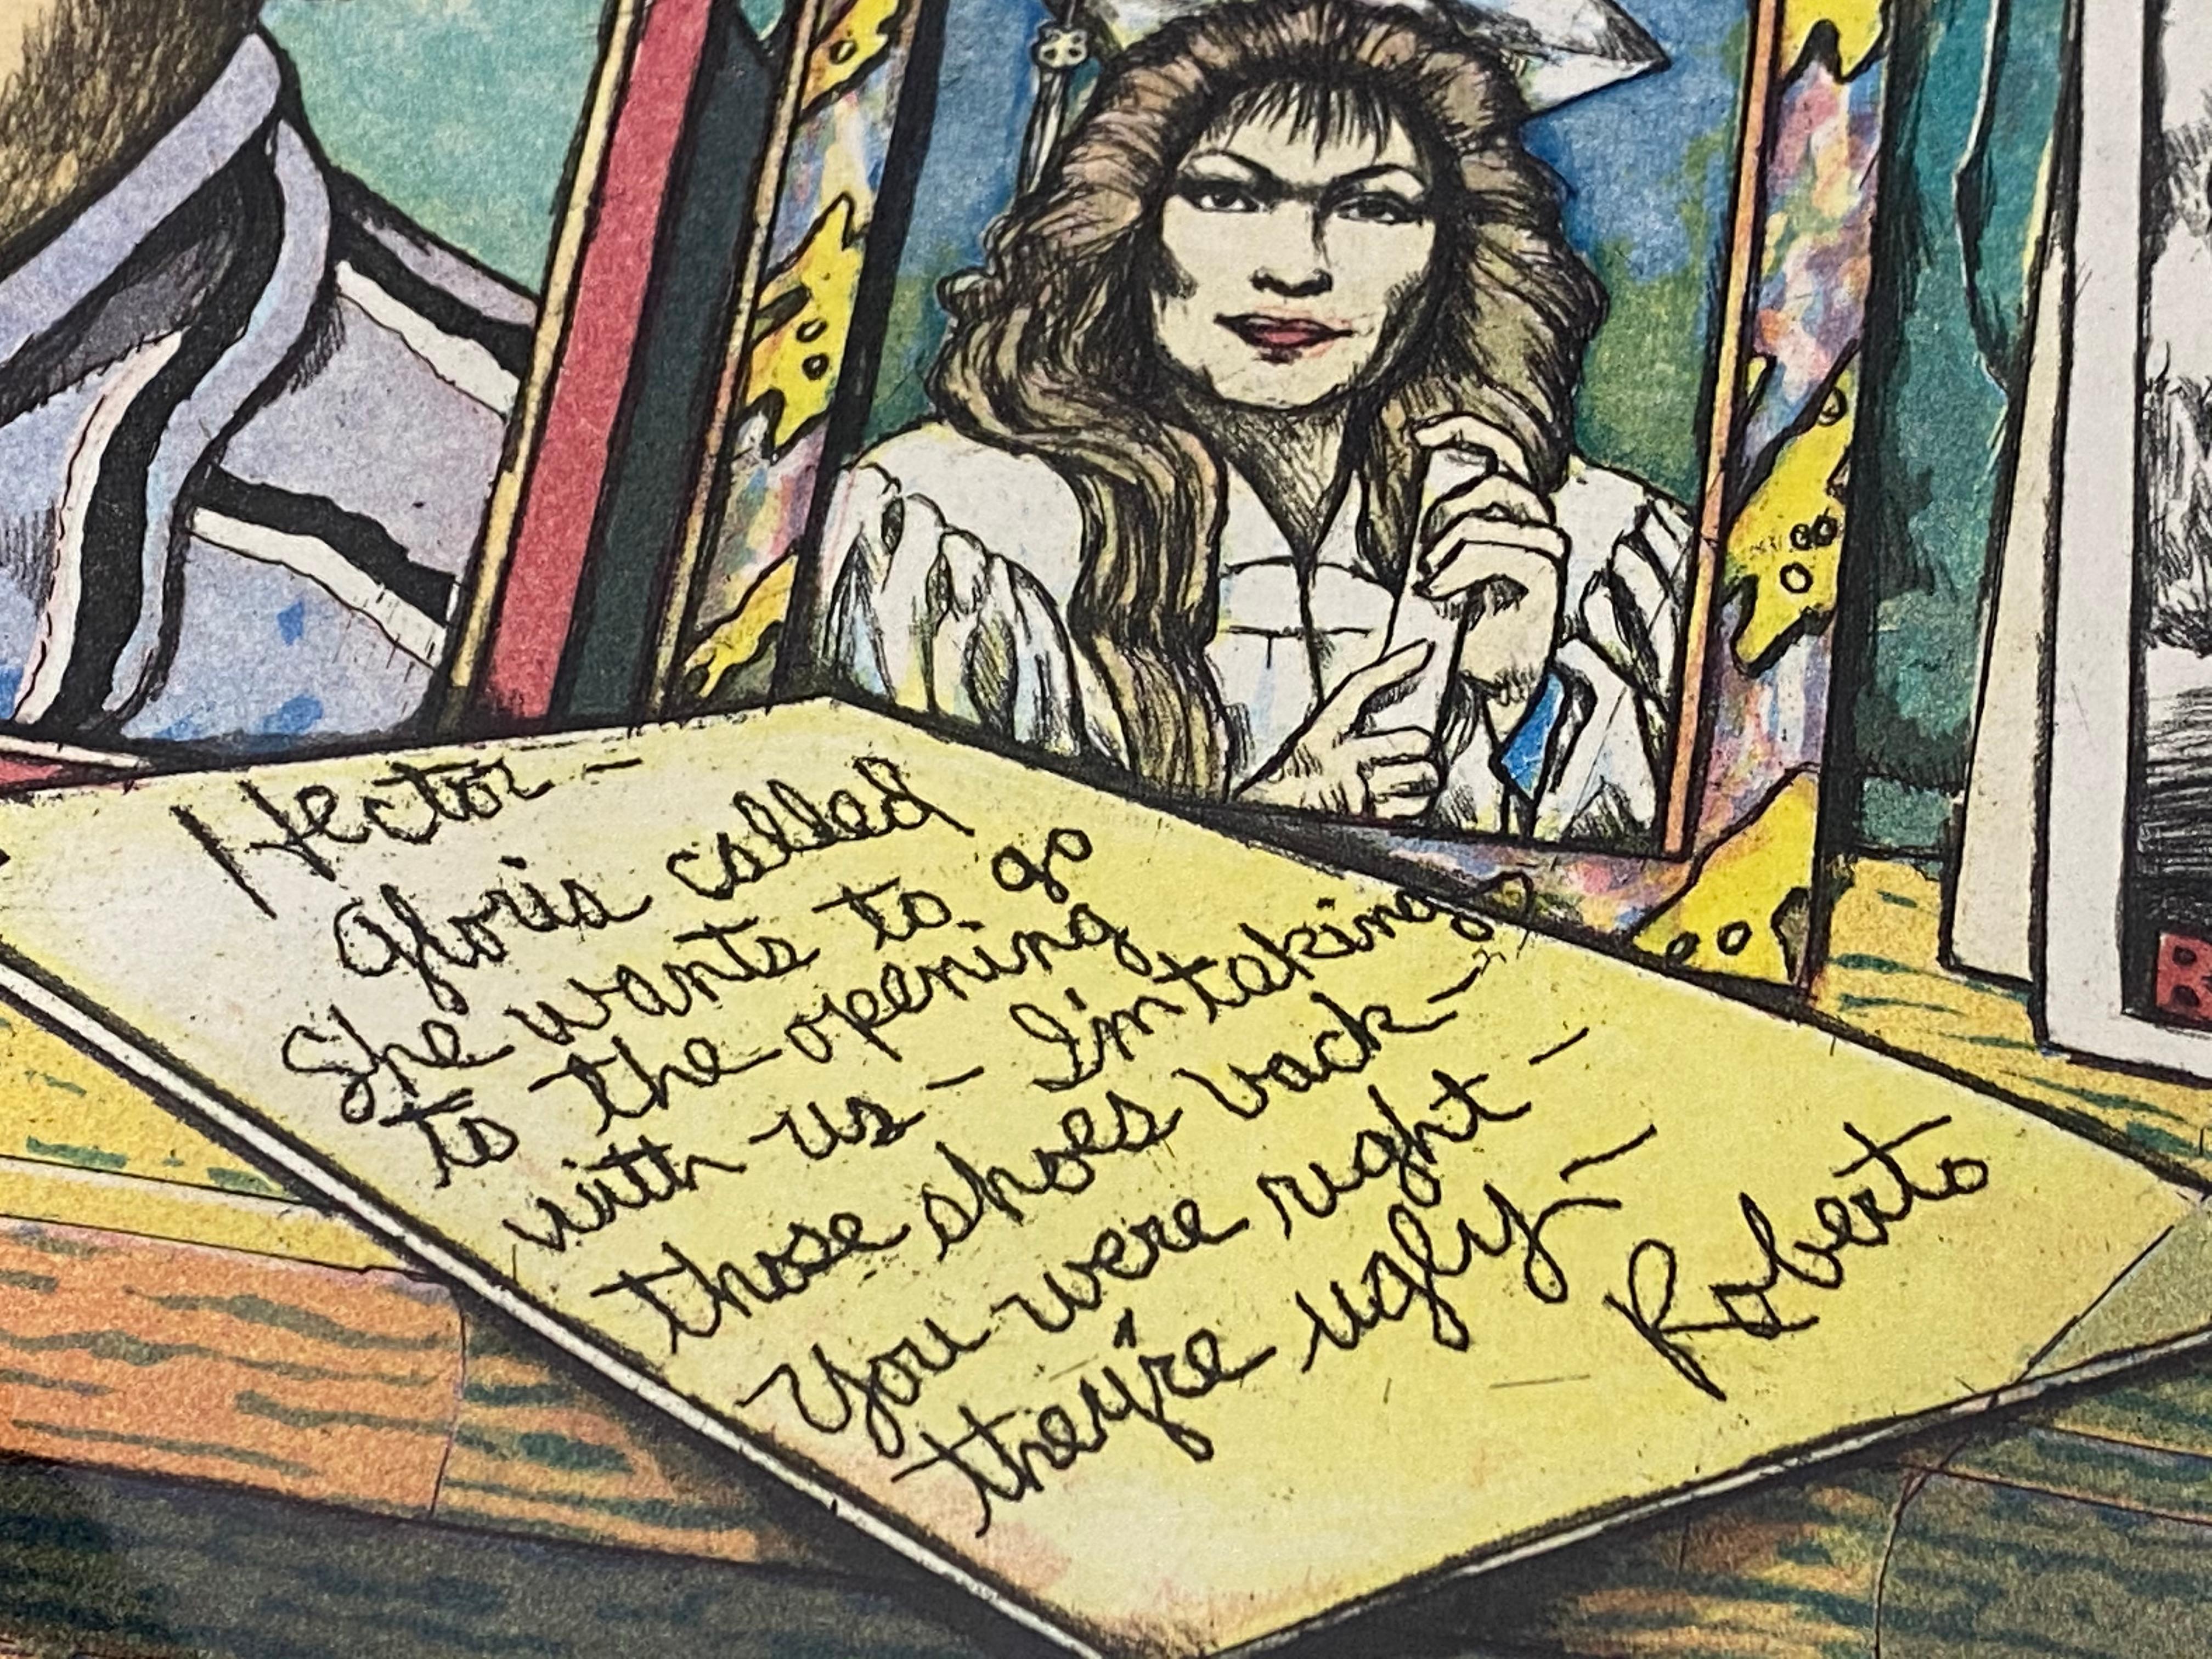 Hector –
Gloria called
She wants to go
to the opening
with us – I'm taking
those shoes back –
You were right –
they're ugly –
Roberto